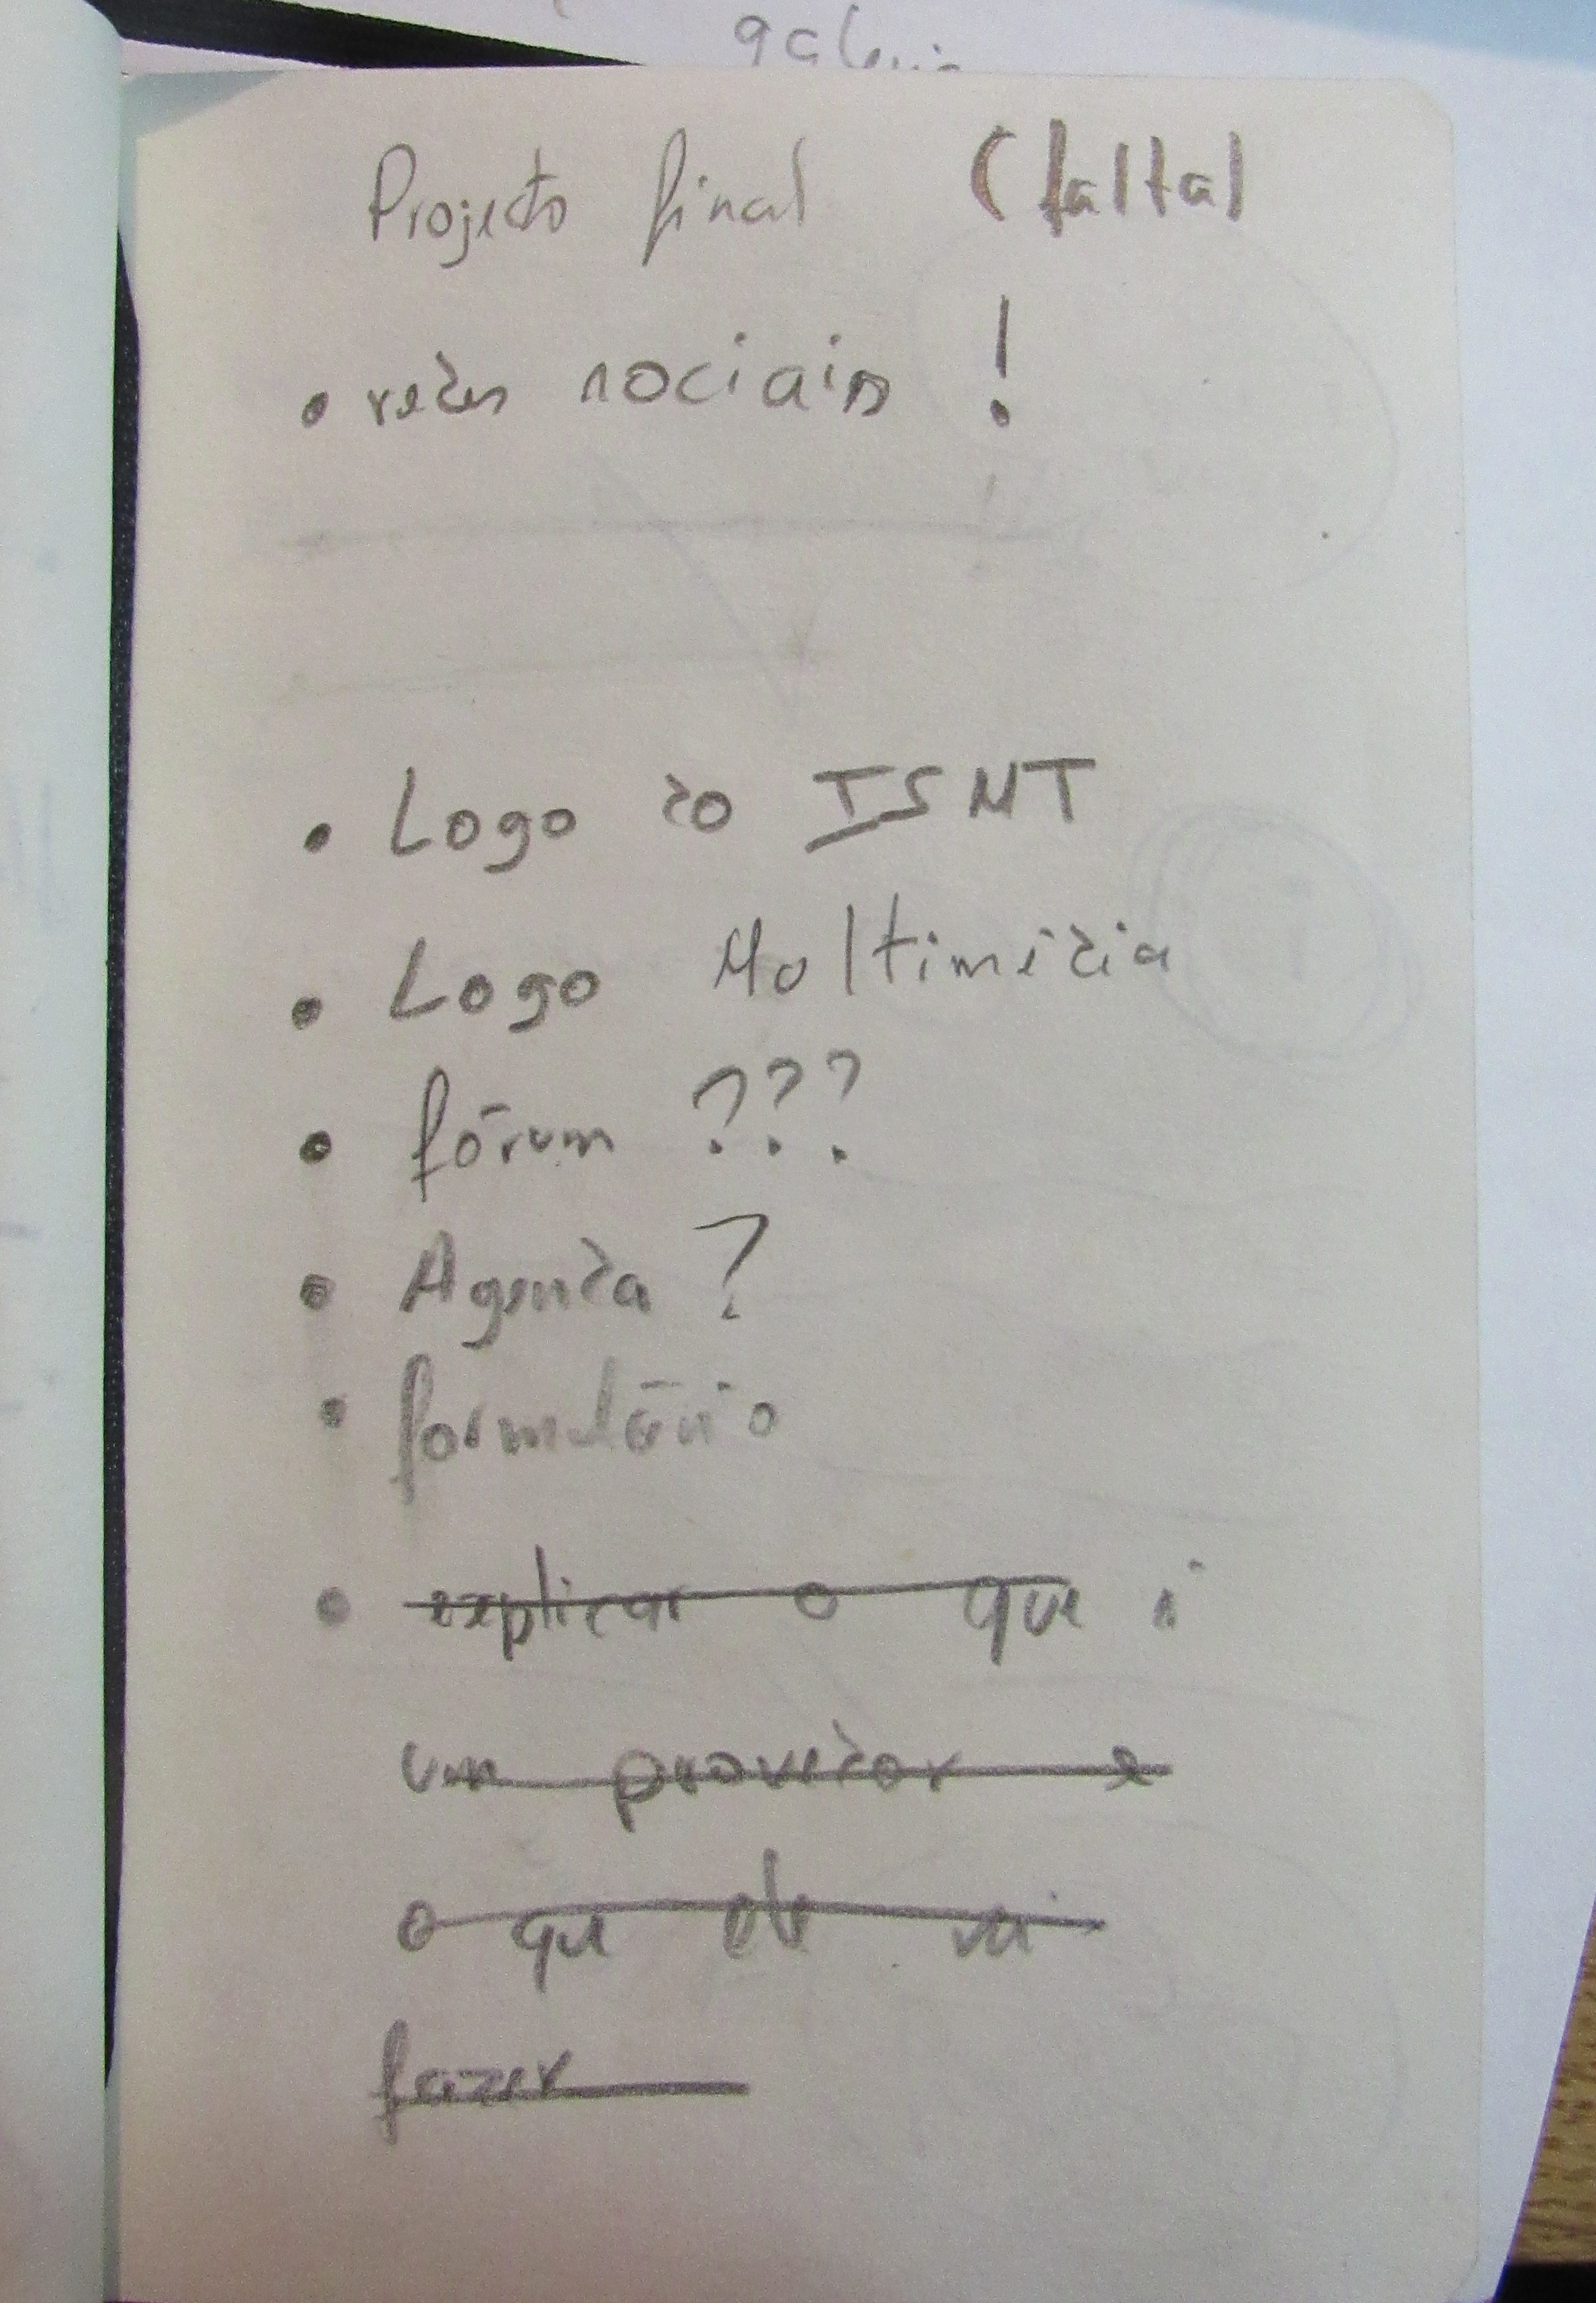 galeria
Projecto final (falta)
• redes sociais !
• Logo do ISMT
• Logo Multimédia
• fórum ???
• Agenda ?
• formulário
• explicar o que é
um provedor e
o que ele vai
fazer